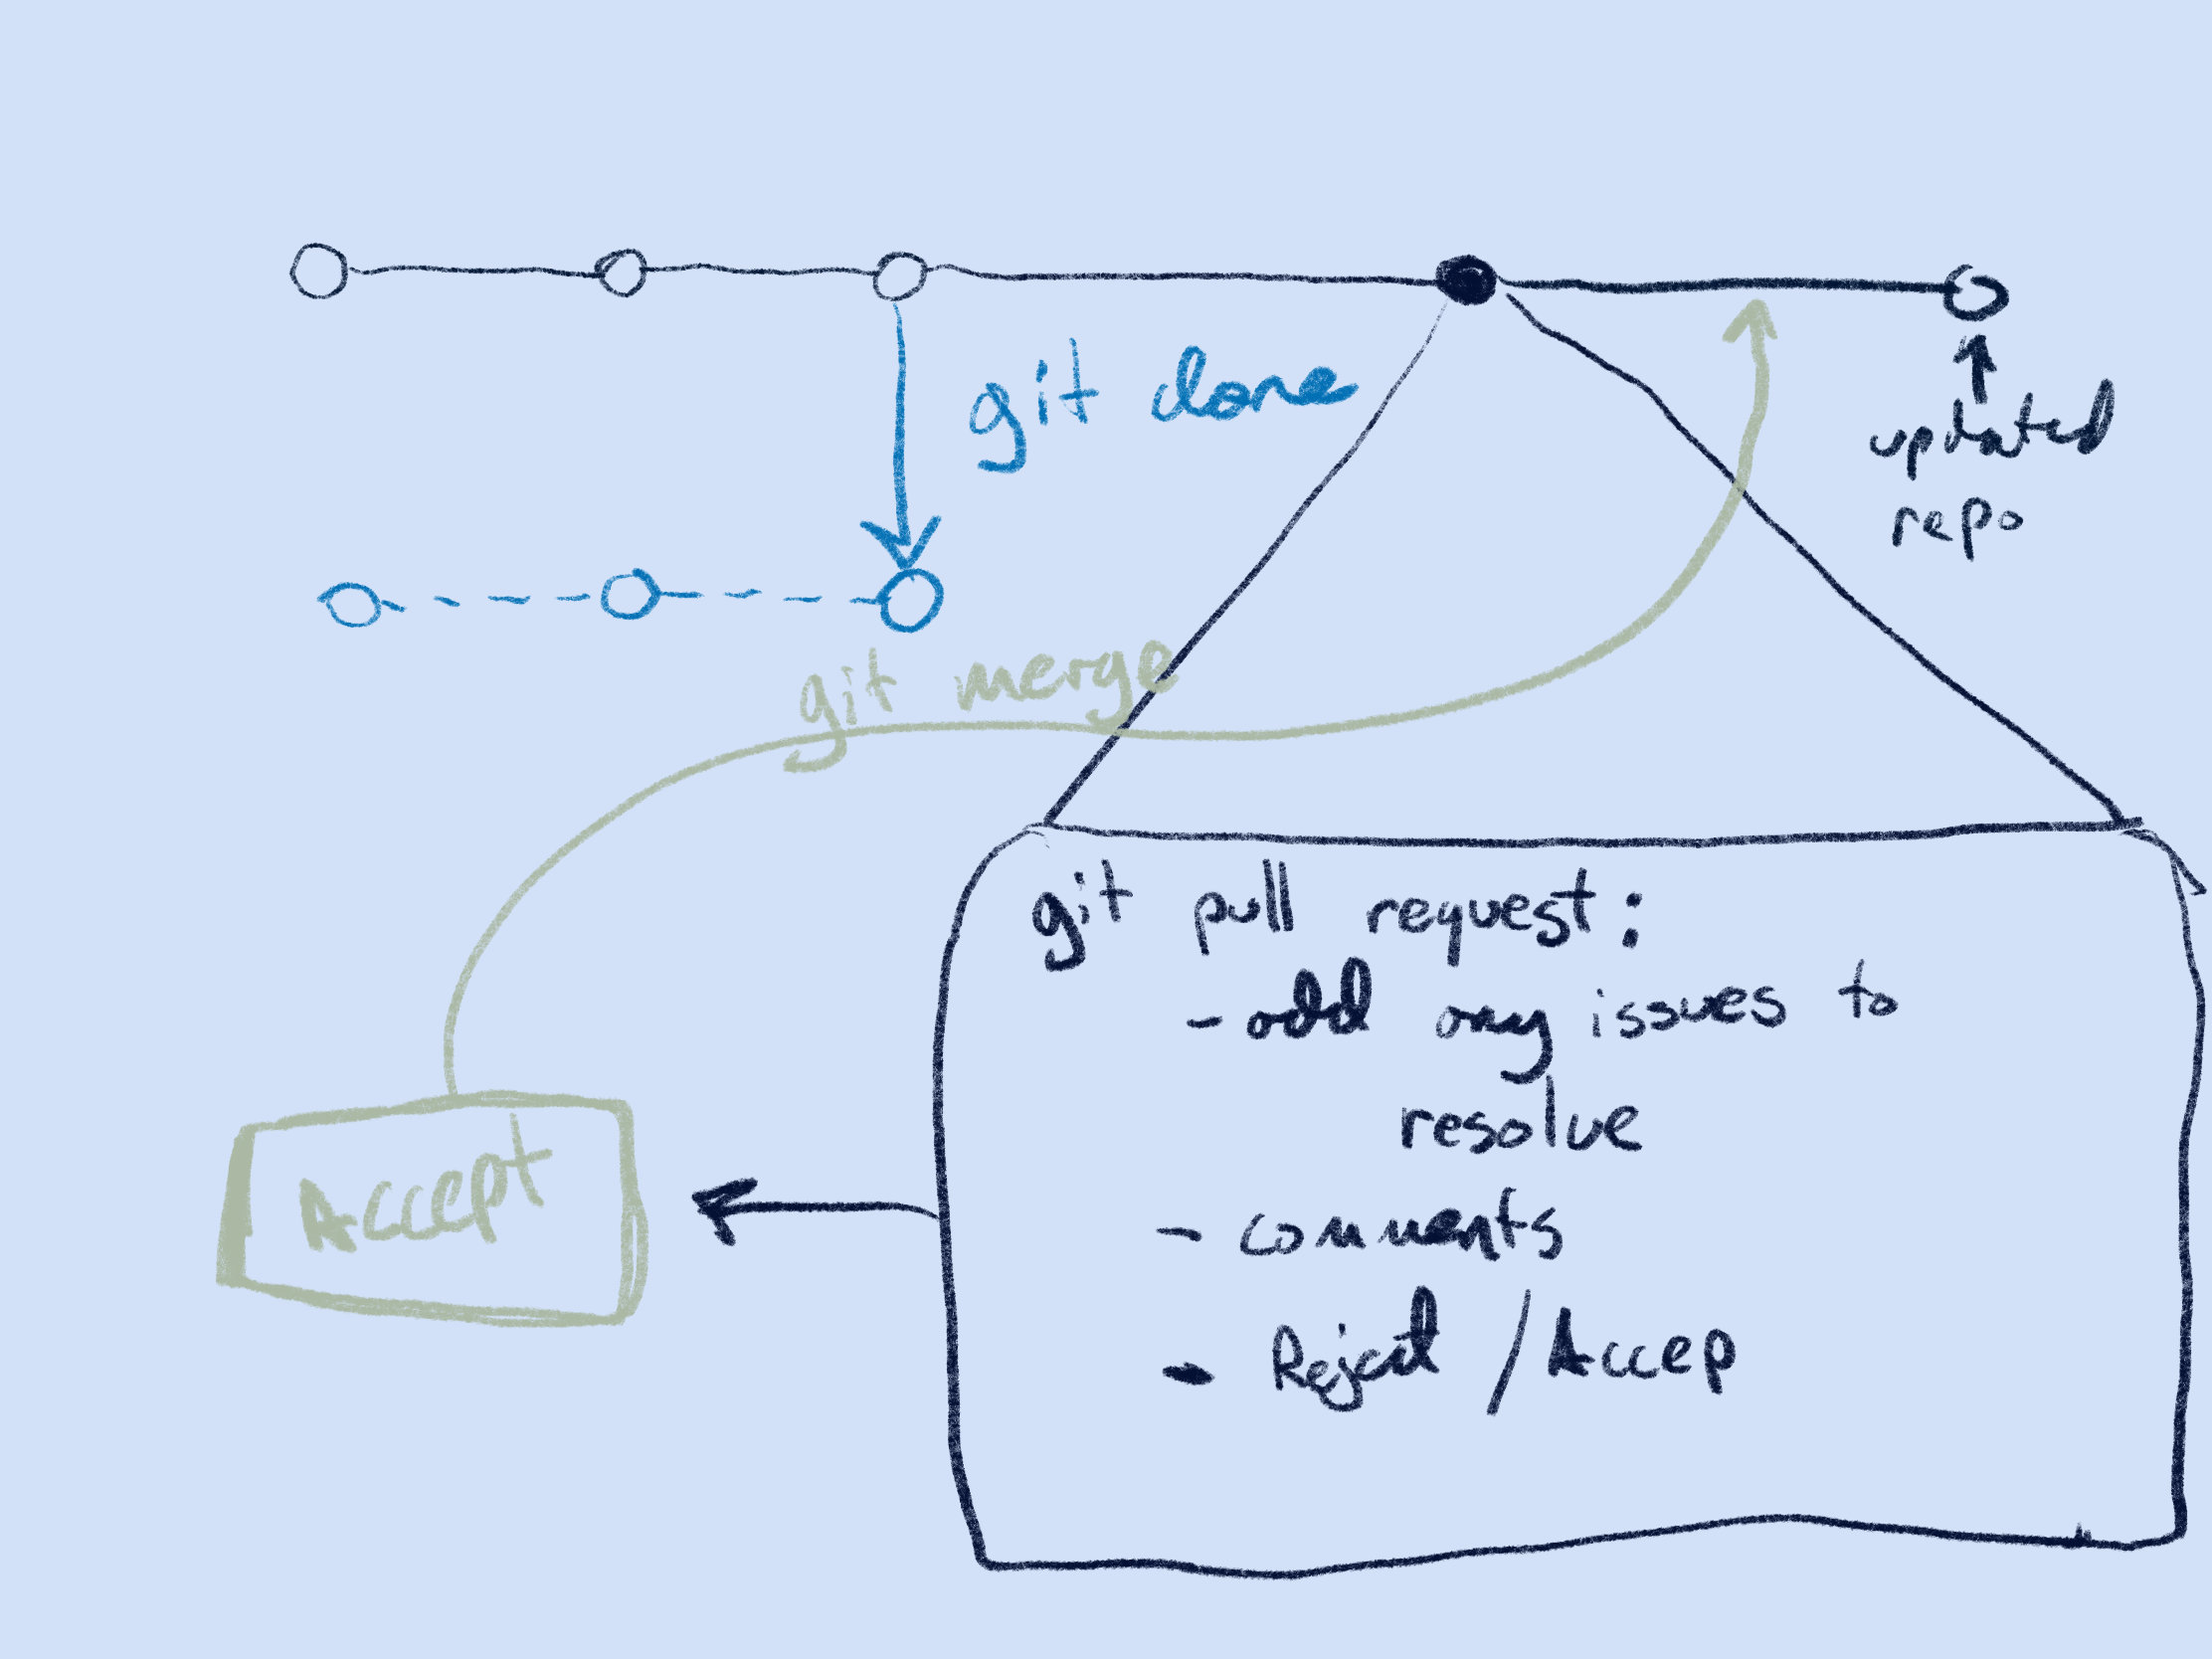 git clone
updated
repo
git merge
git pull request:
- add any issues to
resolve
- comments
- Reject / Accep
Accept